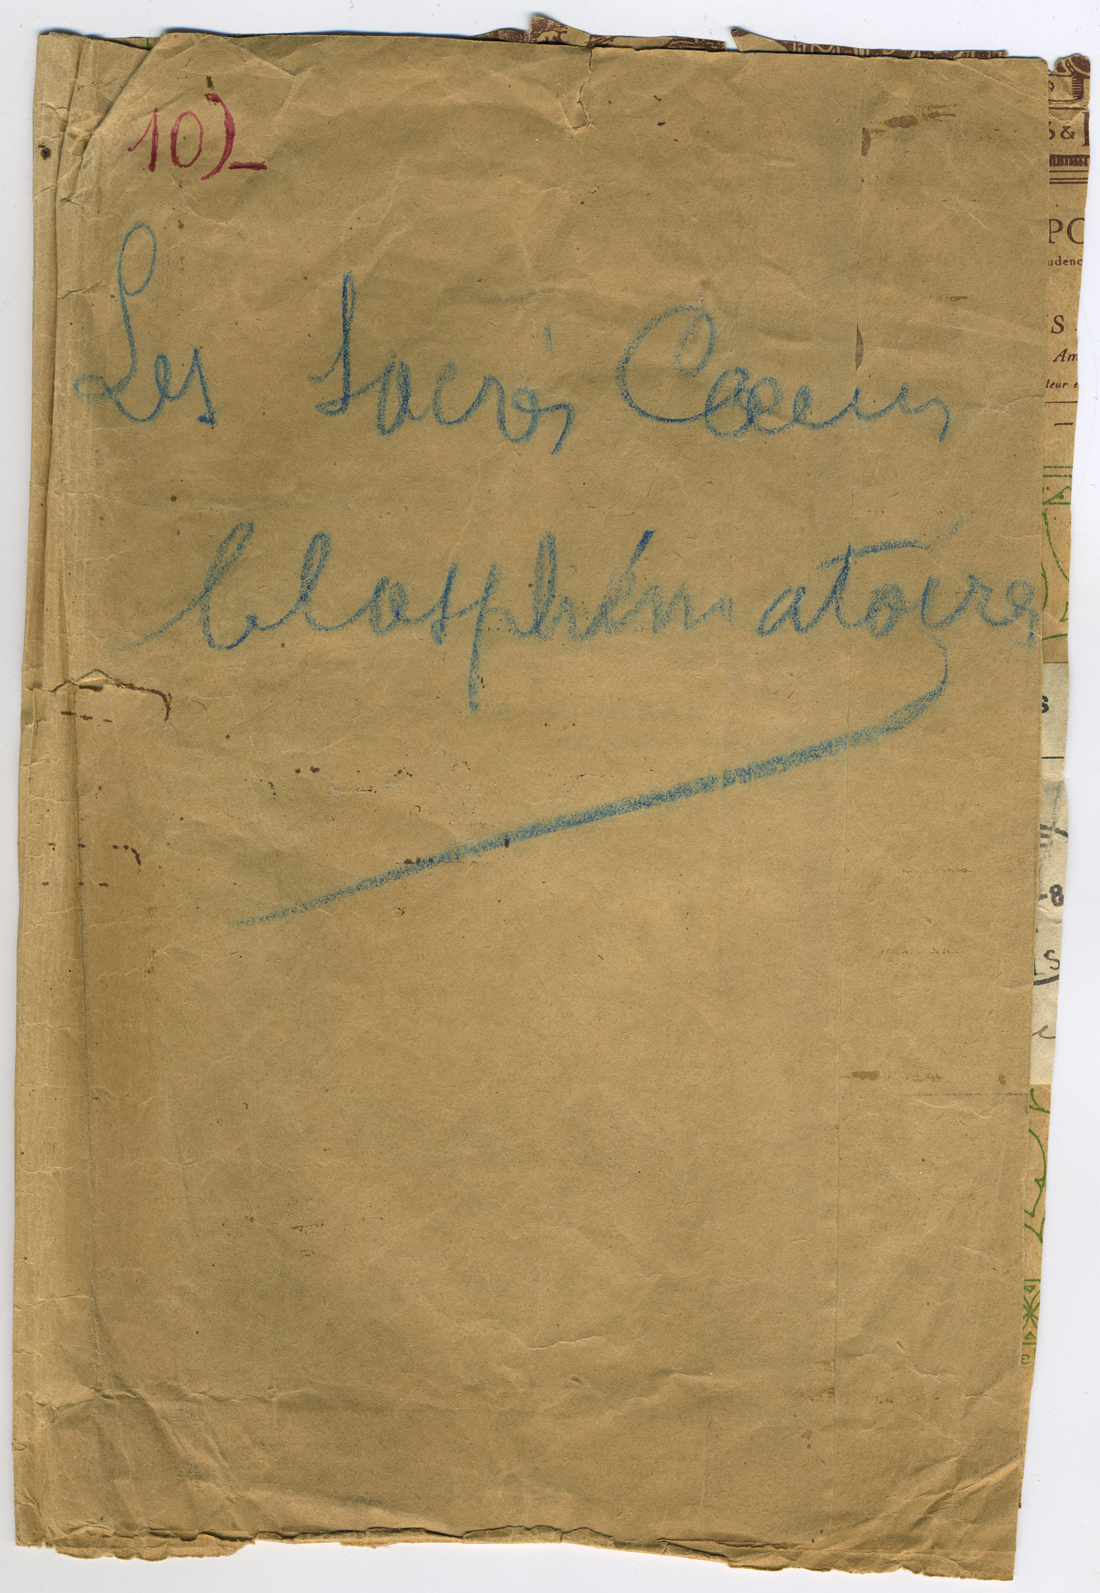 10)-
Les Sacrés Cœurs
blasphématoires
S &
PO
udenc
S
Am
teur e
s
-8